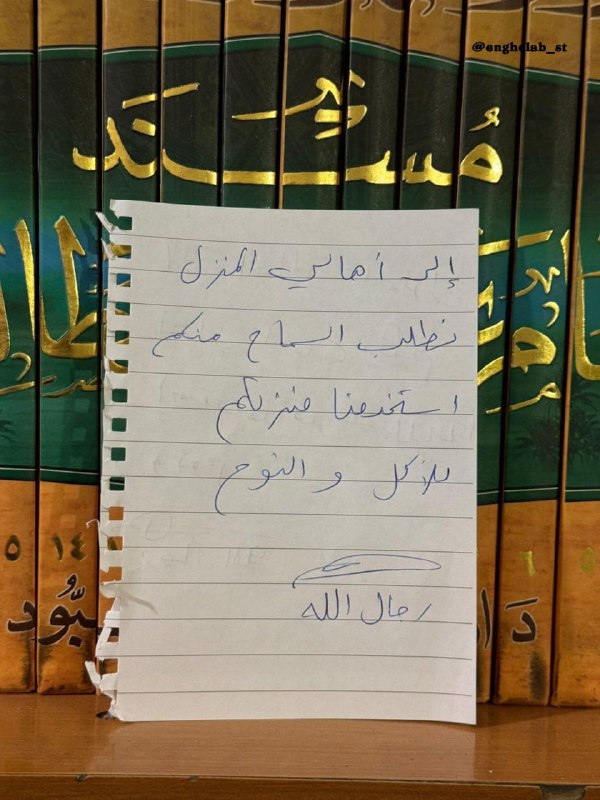 @enghelab_st
مُسْنَد
إلى أهالي المنزل
نطلب السماح منكم
استخدمنا منزلكم
للأكل و النوم
رجال الله
٥ ١٤ ٦